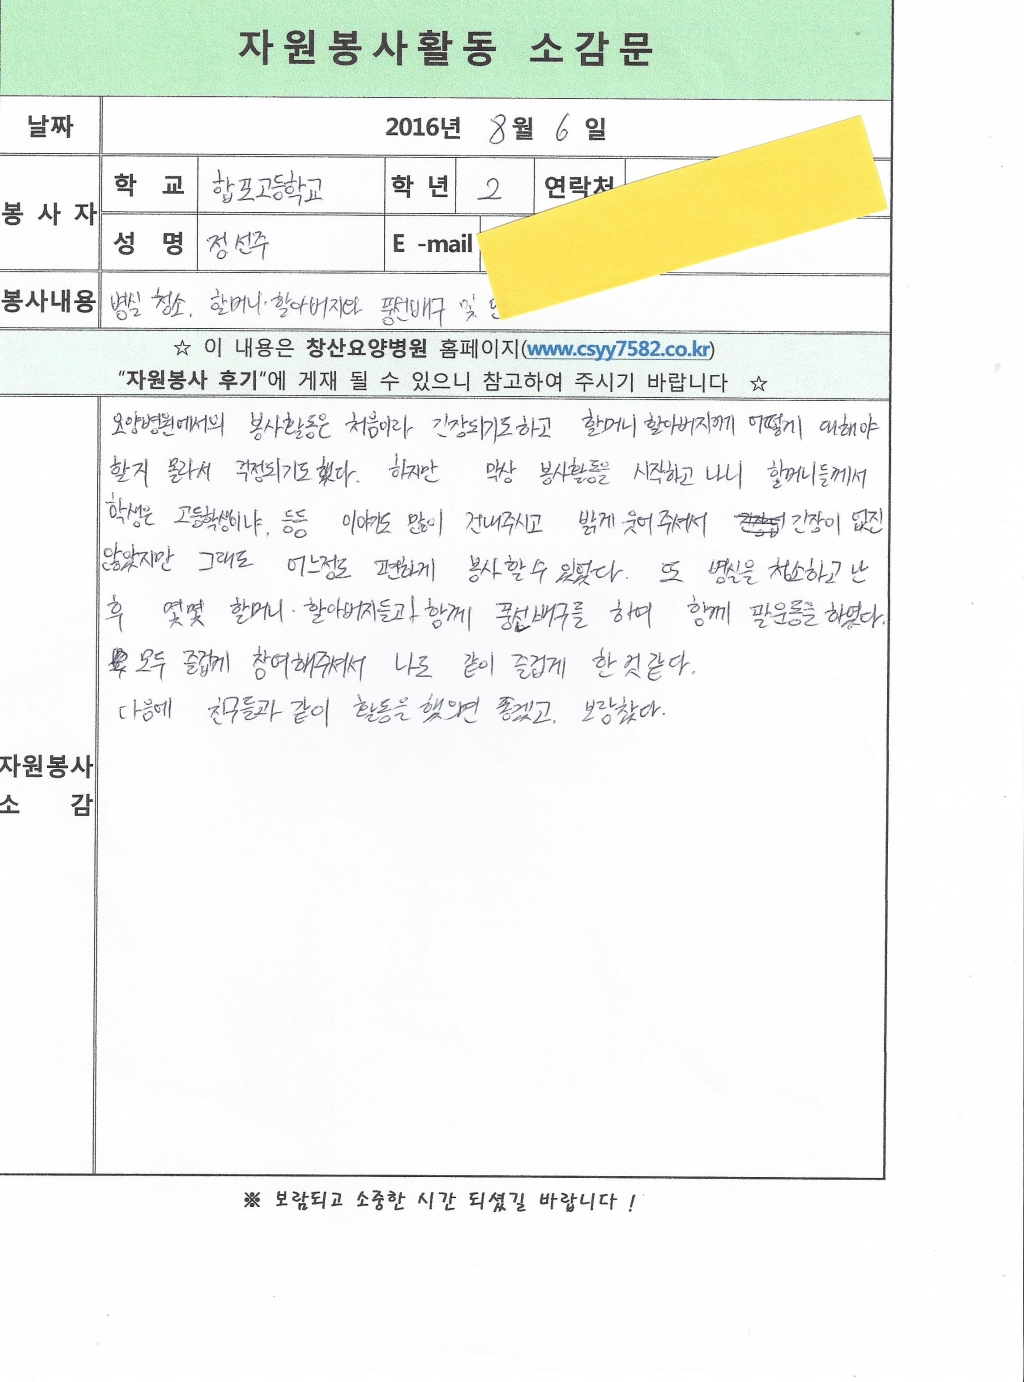 자원봉사활동 소감문
날짜 2016년 8월 6일
봉사자 학 교 합포고등학교 학년 2 연락처
성 명 정선주 E -mail
봉사내용 병실 청소, 할머니·할아버지와 풍선배구 및
☆ 이 내용은 창산요양병원 홈페이지(www.csyy7582.co.kr)
"자원봉사 후기"에 게재 될 수 있으니 참고하여 주시기 바랍니다 ☆
요양병원에서의 봉사활동은 처음이라 긴장되기도하고 할머니 할아버지께 어떻게 대해야
할지 몰라서 걱정되기도 했다. 하지만 막상 봉사활동을 시작하고 나니 할머니들께서
학생은 고등학생이냐, 등등 이야기도 많이 건내주시고 밝게 웃어 주셔서 긴장이 없진
않았지만 그래도 어느정도 편하게 봉사할 수 있었다. 또 병실을 청소하고 난
후 몇몇 할머니·할아버지들과 함께 풍선배구를 하며 함께 팔운동을 하였다.
모두 즐겁게 참여해주셔서 나도 같이 즐겁게 한 것 같다.
다음에 친구들과 같이 활동을 했으면 좋겠고, 보람찼다.
자원봉사
소 감
※ 보람되고 소중한 시간 되셨길 바랍니다 !